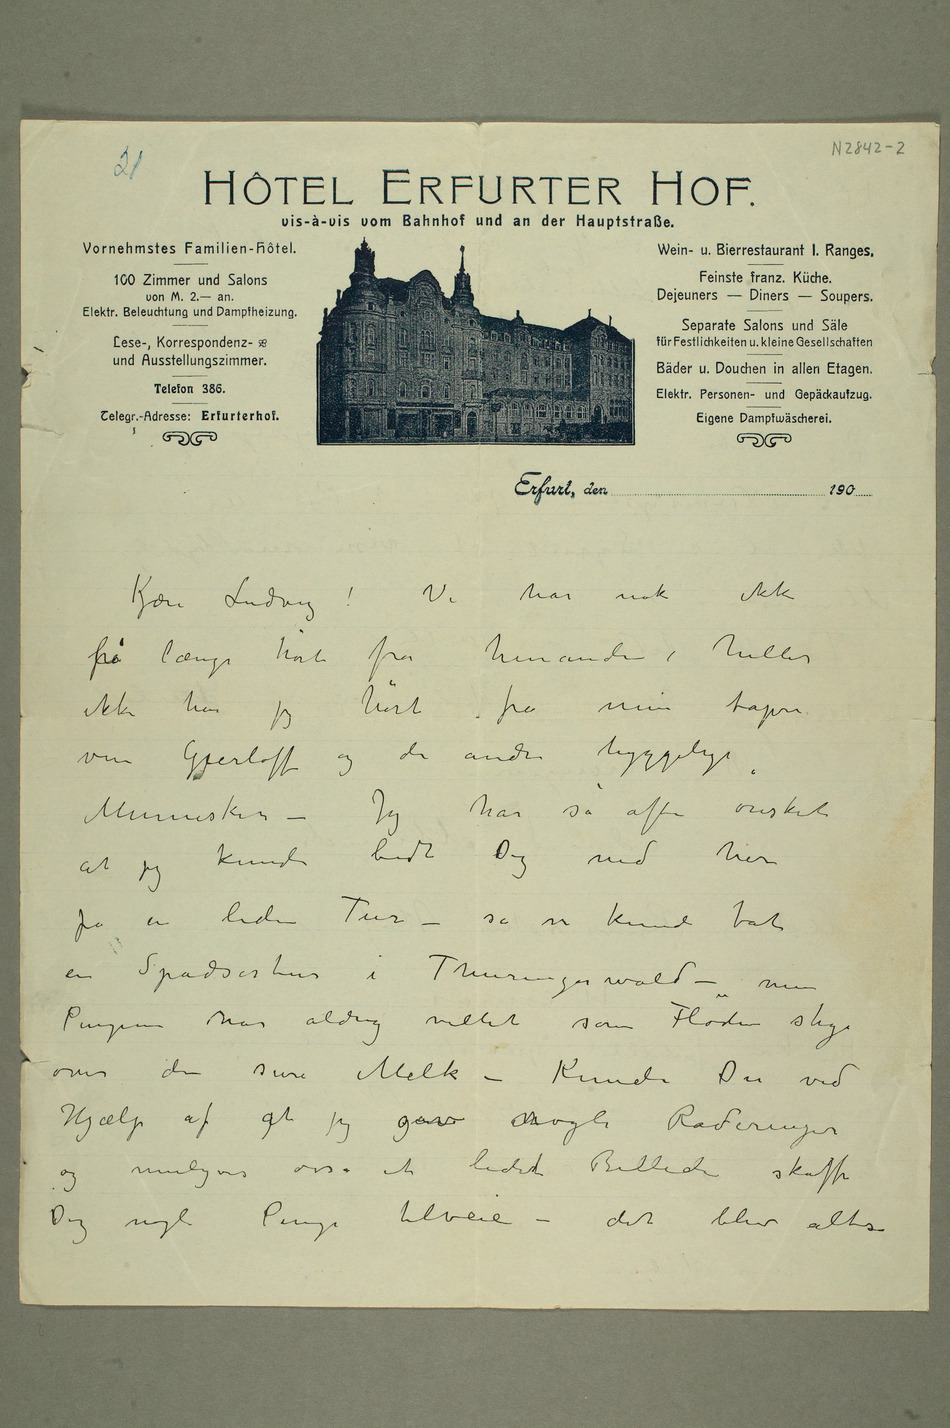 21
N2842-2
HÔTEL ERFURTER HOF.
vis-à-vis vom Bahnhof und an der Hauptstraße.
Vornehmstes Familien-Hôtel.
100 Zimmer und Salons
von M. 2.— an.
Elektr. Beleuchtung und Dampfheizung.
Lese-, Korrespondenz-
und Ausstellungszimmer.
Telefon 386.
Telegr.-Adresse: Erfurterhof.
Wein- u. Bierrestaurant I. Ranges.
Feinste franz. Küche.
Dejeuners — Diners — Soupers.
Separate Salons und Säle
für Festlichkeiten u. kleine Gesellschaften
Bäder u. Douchen in allen Etagen.
Elektr. Personen- und Gepäckaufzug.
Eigene Dampfwäscherei.
Erfurt, den 190
Kjære Ludvig! Vi har nok ikke
på længe hørt fra hinanden, heller
ikke har jeg hört fra min tapre
ven Gjerløff og de andre hyggelige
Mennesker – Jeg har så ofte ønsket
at jeg kunde budt Dig ned her
på en liden Tur – så vi kunde tat
en Spadsertur i Thuringerwald – men
Pengene har aldrig villet som Flöden stige
over den sure Melk – Kunde Du ved
Hjælp af at jeg gav nogle Raderinger
og muligens også et lidet Billede skaffe
Dig nogle Penge tilveie – det blev altså